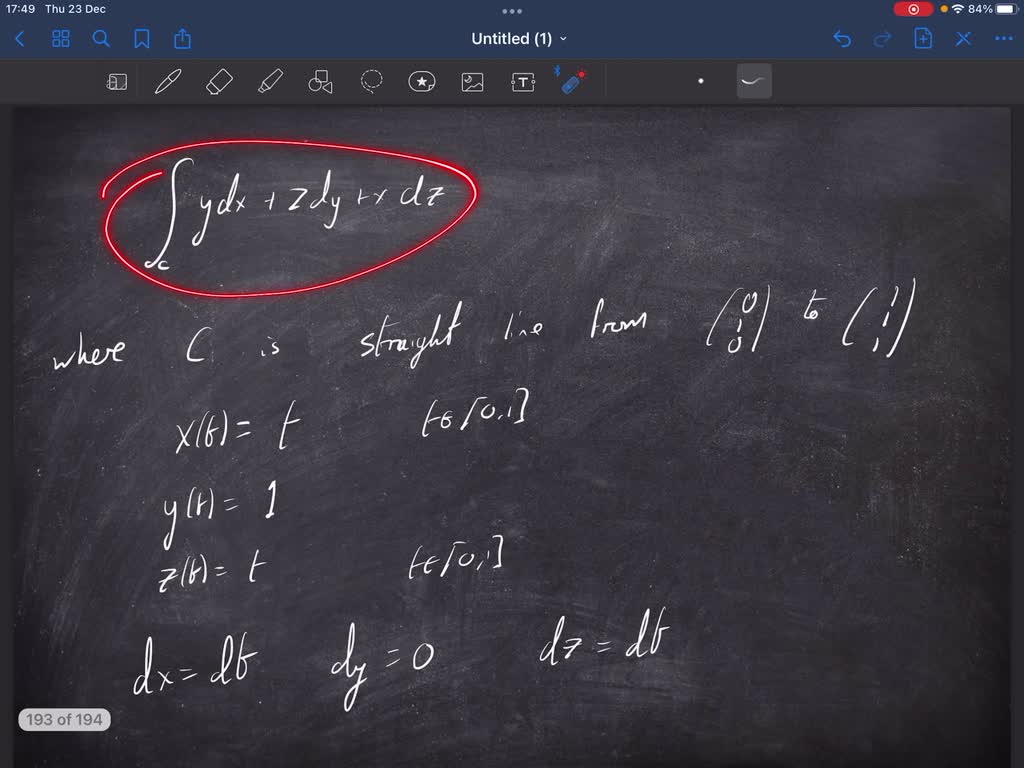 17:49 Thu 23 Dec 84%
Untitled (1)
∫_C ydx + zdy + x dz
where C is straight line from (0 1 0) to (1 1 1)
x(t) = t t∈[0,1]
y(t) = 1
z(t) = t t∈[0,1]
dx = dt dy = 0 dz = dt
193 of 194